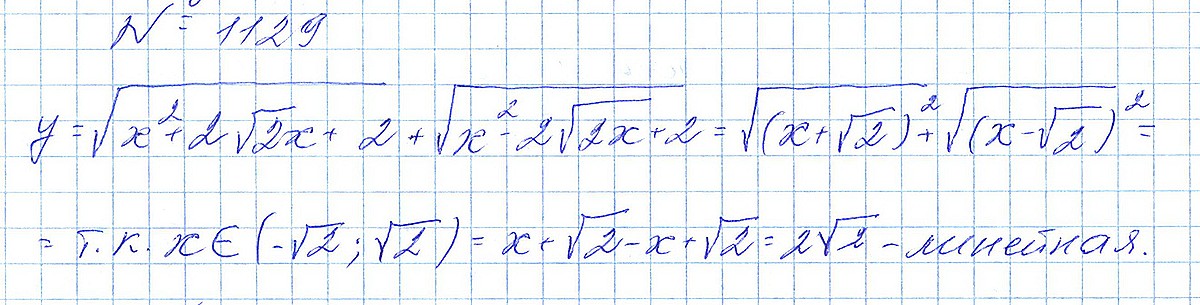 № 1129
y = √(x² + 2√2x + 2) + √(x² - 2√2x + 2) = √((x+√2)²) + √((x-√2)²) =
= т.к. x ∈ (-√2; √2) = x + √2 - x + √2 = 2√2 - линейная.